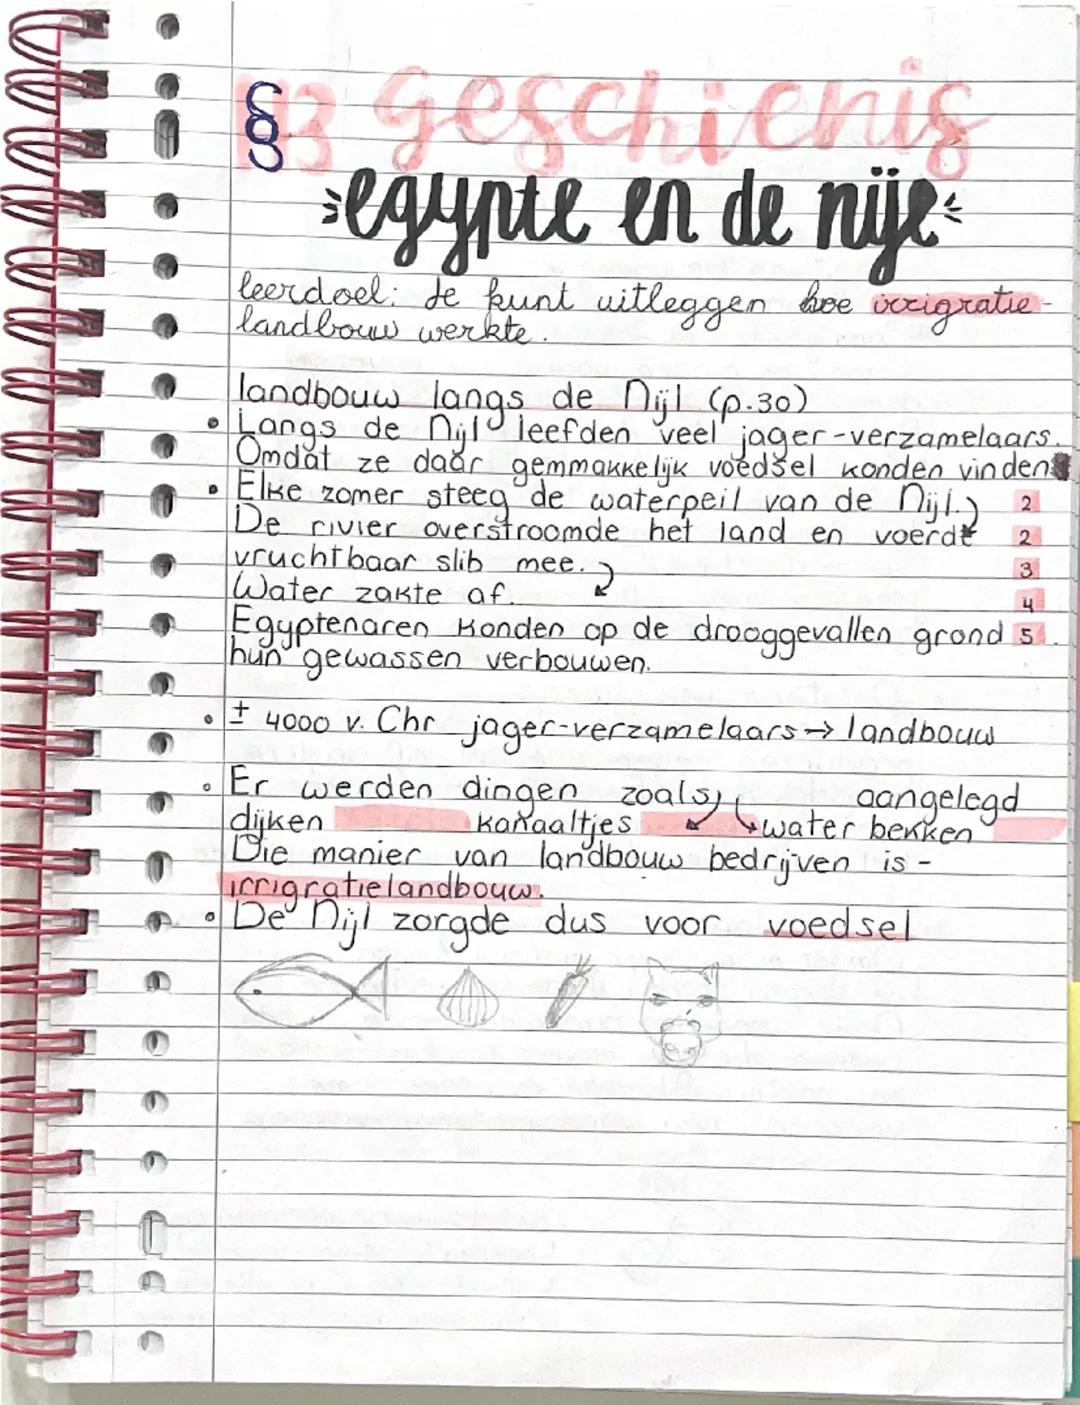 §3 geschienis
egypte en de nije
leerdoel: Je kunt uitleggen hoe irrigratie-
landbouw werkte.
landbouw langs de Nijl (p.30)
• Langs de Nijl leefden veel jager-verzamelaars.
Omdat ze daar gemmakkelijk voedsel konden vinden
• Elke zomer steeg de waterpeil van de Nijl. 2
De rivier overstroomde het land en voerde 2
vruchtbaar slib mee. 3
Water zakte af. 4
Egyptenaren konden op de drooggevallen grond 5
hun gewassen verbouwen.
• ± 4000 v. Chr jager-verzamelaars → landbouw
• Er werden dingen zoals, aangelegd
dijken kanaaltjes water bekken
Die manier van landbouw bedrijven is -
irrigratielandbouw.
• De Nijl zorgde dus voor voedsel